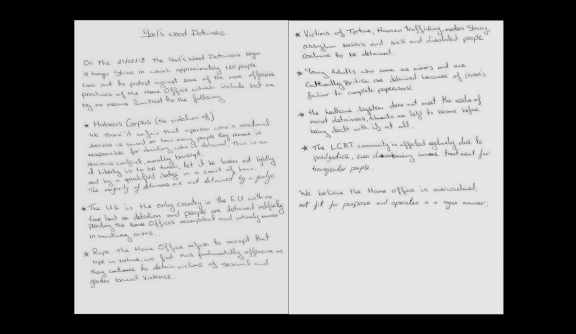 Yarl's Wood Detainees
On the 21/02/18 The Yarl's Wood Detainees began
a hunger strike in which approximately 120 people
took part to protest against some of the more offensive
practices of the Home Office which include but are
by no means limited to the following
* Habeas Corpus (the violation of)
We think it unfair that a person who's
success is based on how many people they remove is
responsible for deciding who is detained, this is an
obvious conflict, morally bankrupt.
If liberty is to be taken, let it be taken not lightly
and by a qualified Judge in a court of law.
The majority of detainees are not detained by a Judge
* The UK is the only country in the EU with no
time limit on detention and people are detained indefinitely
pending the Home Offices incompetent and
in
* Rape the Home Office refuse to accept that
rape is torture, we find this offensive as
they continue to detain victims of sexual and
gender based violence.
* Victims of Torture, Human trafficking, modern Slavery,
asylum seekers and sick and disabled people
continue to be detained.
* Young Adults who came as minors and are
Culturally British are detained because of parent's
failure to complete paperwork
* the healthcare system does not meet the needs of
most detainees, are left to become before
being dealt with if at all.
* The LGBT community is affected due to
prejudice, even treatment for
transgender people.
We believe the Home Office is overwhelmed,
not fit for purpose and operates in a rogue manner.